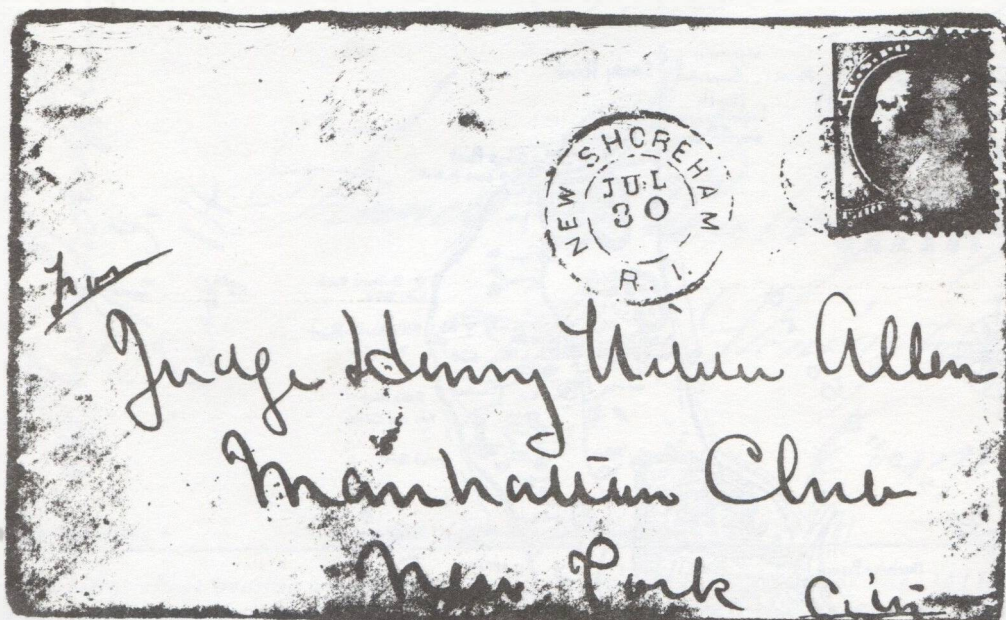 NEW SHOREHAM
JUL
30
R. I.
Judge Henry Wilder Allen
Manhattan Club
New York City